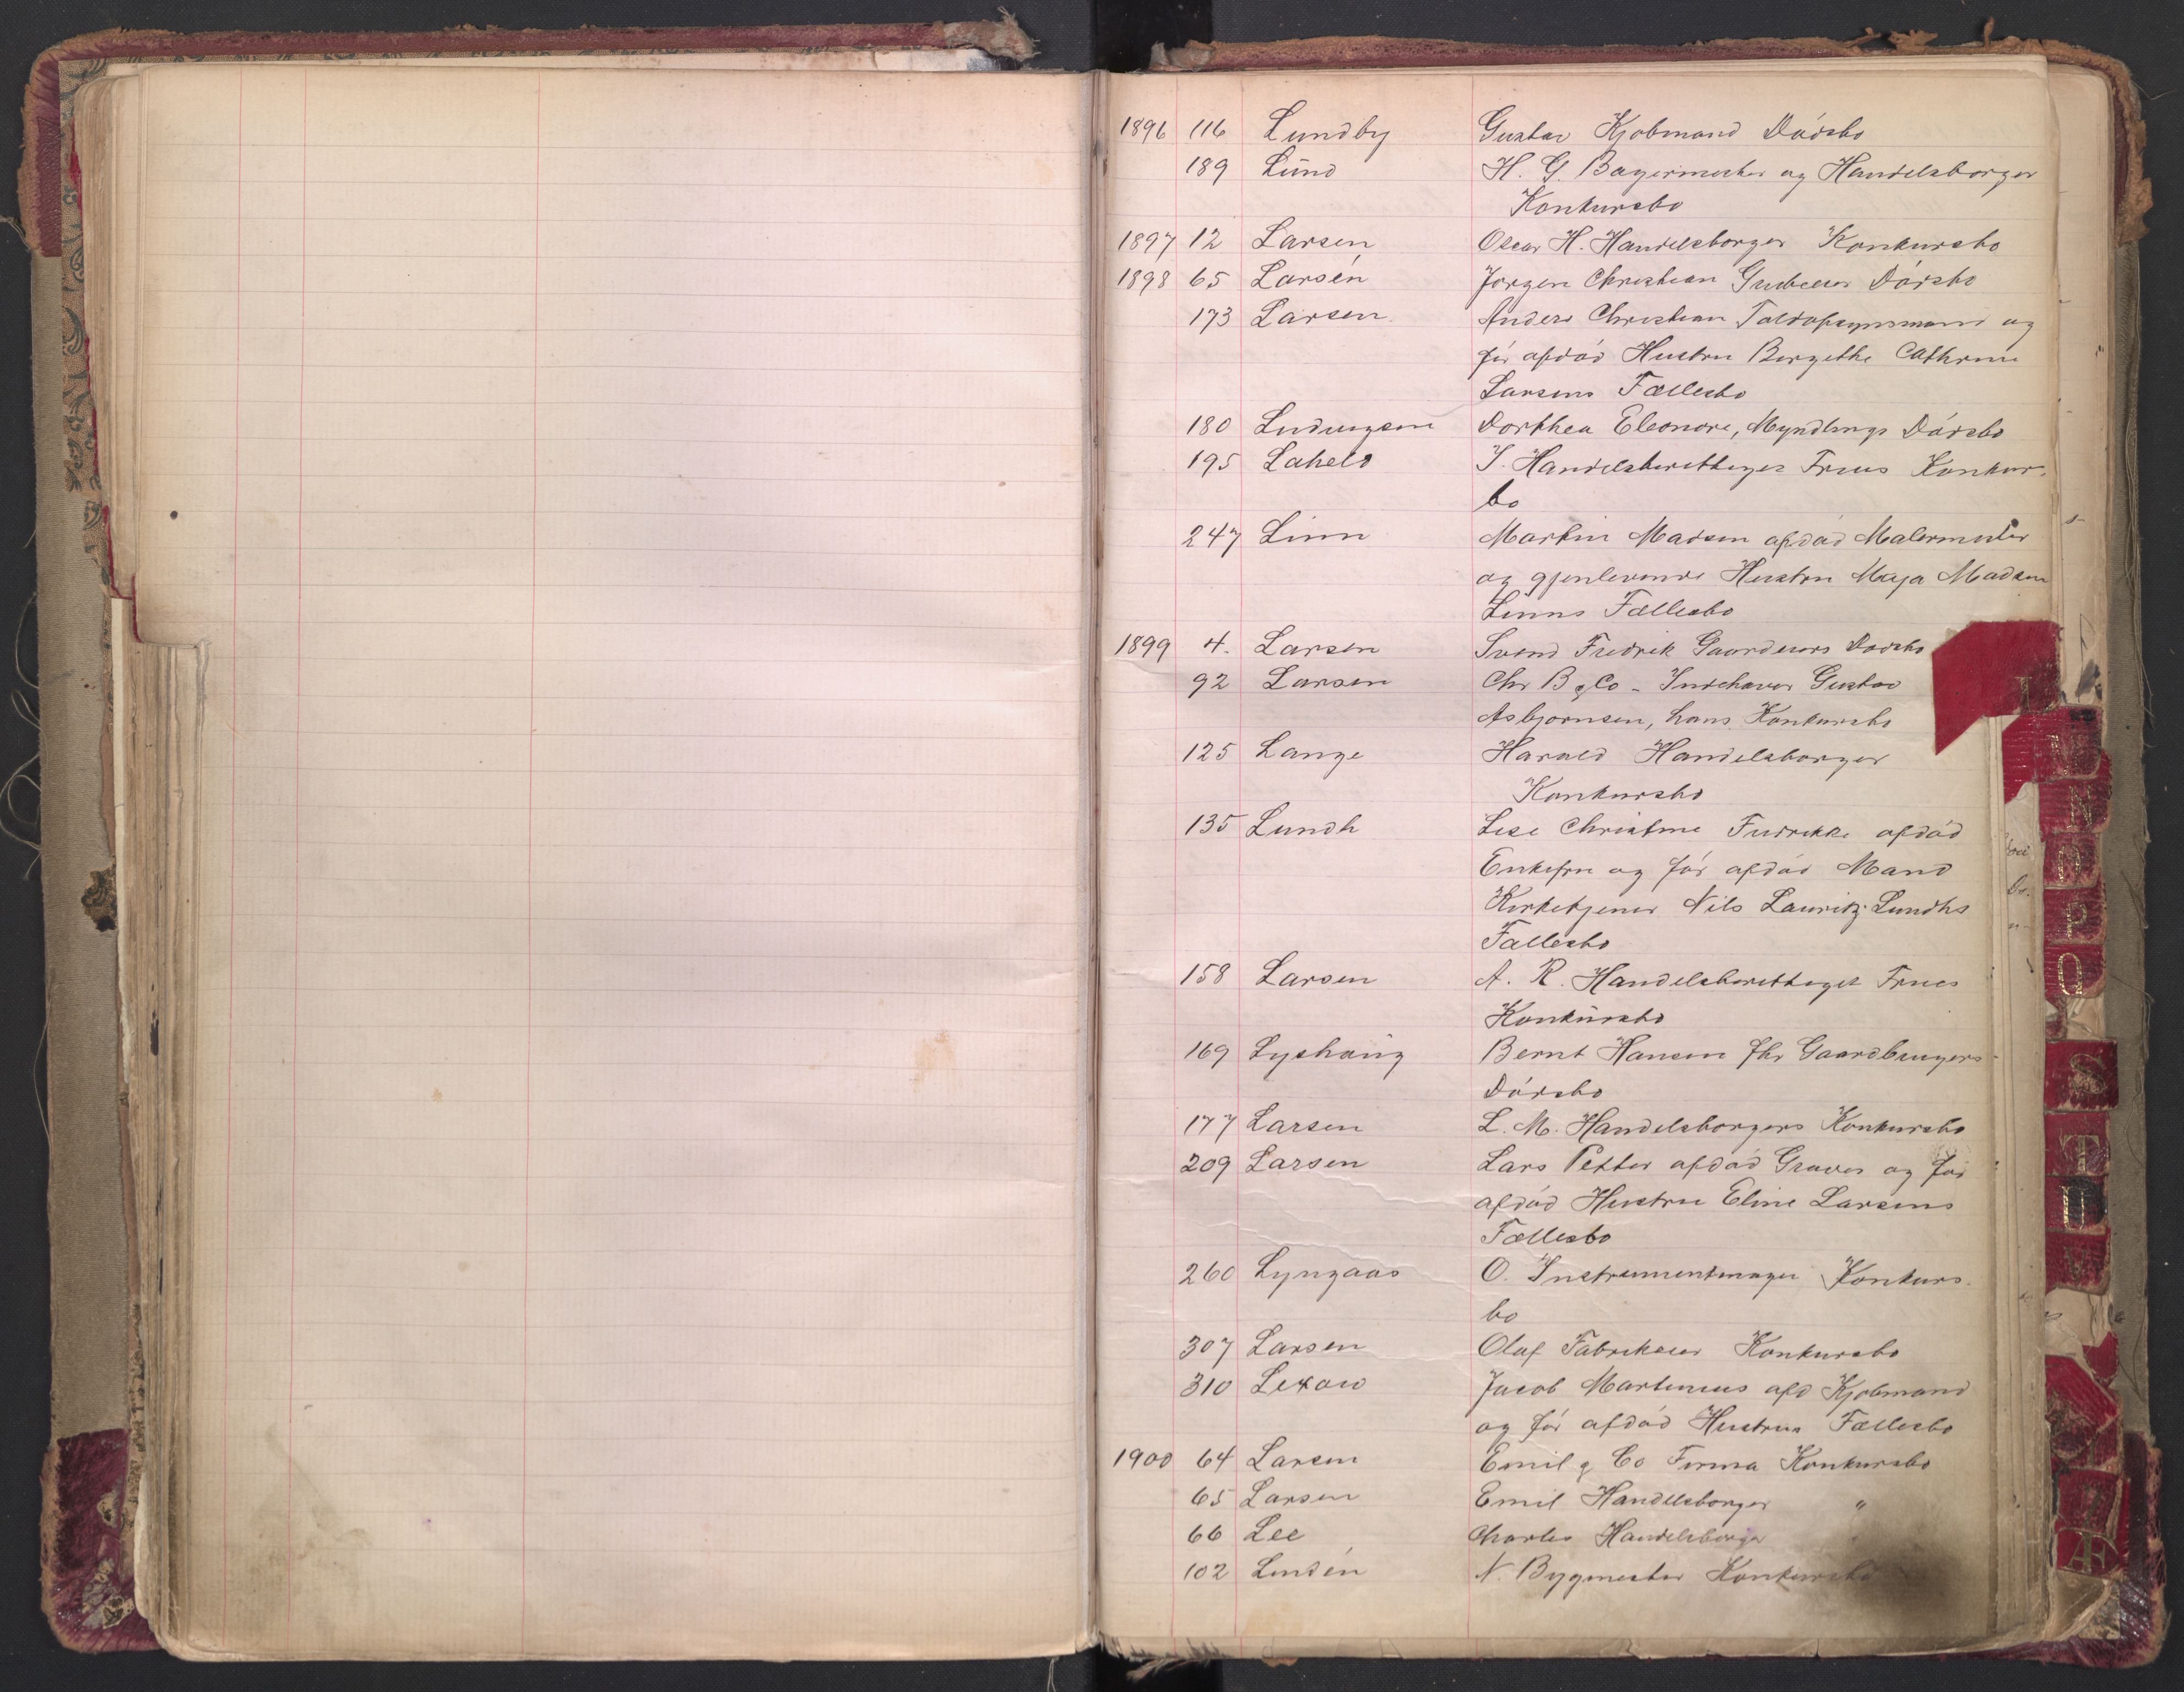 1896 116 Lundby Gustav Kjøbmand Dødsbo
189 Lund H. G. Bagermester og Handelsborger
Konkursbo
1897 12 Larsen Oscar H. Handelsborger Konkursbo
1898 65 Larsen Jørgen Christian Dødsbo
173 Larsen Anders Christian Toldopsynsmand og
før afdød Hustru Bergethe Cathrine
Larsens Fællesbo
180 Ludvigsen Dorthea Eleonore, Myndlings Dødsbo
195 Lakeld I. Handelsberettiget Frues Konkurs
bo
247 Linn Martin Madsen afdød Malermester
og gjenlevende Hustru Maja Madsen
Linns Fællesbo
1899 4. Larsen Svend Fredrik Gaardeiers Dødsbo
92 Larsen Chr B & Co - Indehaver Gustav
Asbjørnsen, hans Konkursbo
125 Lange Harald Handelsborger
Konkursbo
135 Lundh Lise Christine Fredrikke afdød
Enkefru og før afdød Mand
Kirketjener Nils Lauritz Lundhs
Fællesbo
158 Larsen A. R. Handelsberettiget Frues
Konkursbo
169 Lyshaug Bernt Hansen fhv Gaardbrugers
Dødsbo
177 Larsen L. M. Handelsborgers Konkursbo
209 Larsen Lars Petter afdød Graver og før
afdød Hustru Eline Larsens
Fællesbo
260 Lyngaas O. Instrumentmager Konkurs
bo
307 Larsen Oluf Fabrikeier Konkursbo
310 Lexow Jacob Martinius afd Kjøbmand
og før afdød Hustrus Fællesbo
1900 64 Larsen Emil & Co Firma Konkursbo
65 Larsen Emil Handelsborger "
66 Lee Charles Handelsborger
102 Lindén N. Bygmester Konkursbo
L
N
O
P
Q
S
T
U
Æ